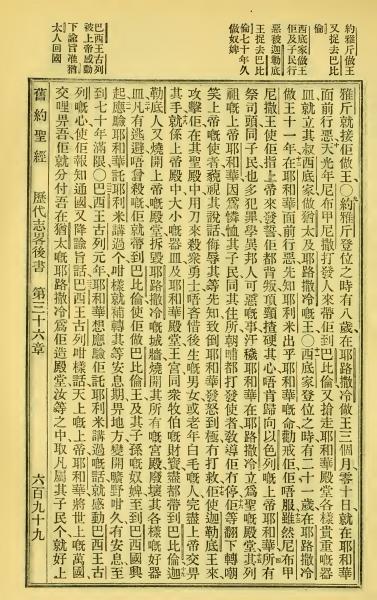 約雅斤做王
又捉去巴比
倫
西底家做王
佢及子民行
惡被迦勒底
王捉去巴比
倫七十年久
做奴婢
巴西王古列
被上帝感動
下諭旨准猶
太人回國
雅斤就接佢做王〇約雅斤登位之時有八歲在耶路撒冷做王三個月零十日就在耶和華
面前行惡天光年尼布甲尼撒打發人來帶佢到巴比倫又搶走耶和華殿堂各樣貴重嘅器
皿就立其叔西底家做猶太及耶路撒冷嘅王〇西底家登位之時有二十一歲在耶路撒冷
做王十一年在耶和華面前行惡先知耶利米出乎耶和華嘅命勸戒佢佢唔服雖然尼布甲
尼撒王使佢指上帝來發誓佢都背叛項頸揸硬其心唔肯歸向以色列嘅上帝耶和華所有
祭司頭同子民也多犯罪學異邦人可惡嘅事汙穢耶和華在耶路撒冷立爲聖嘅殿堂其列
祖嘅上帝耶和華因爲憐恤其子民同其住所朝晡都打發使者教導佢冇停佢等翻下轉嘲
笑上帝嘅使者藐視其說話侮辱其等先知致到耶和華發怒到極冇打救佢使迦勒底王來
攻擊佢在其聖殿中用刀來殺柰勇士唔吝惜後生嘅男女或老年白毛嘅人完盡上帝交畀
其手就係上帝殿中大小嘅器皿及耶和華殿堂王宮同衆牧伯嘅財寳盡都帶到巴比倫迦
勒底人又燒開上帝嘅殿堂拆毀耶路撒冷嘅城牆燒開其所有嘅宮殿廢壞其各樣嘅好器
皿凡有逃避唔曾殺嘅佢就帶到巴比倫使佢做巴比倫王及其子孫嘅奴婢至到巴西國興
起應驗耶和華託耶利米講過个咁樣就補轉其等安息期畀地方變開曠野咁久有安息至
到七十年滿限〇巴西王古列元年耶和華想應驗佢託耶利米講過嘅話就感動巴西王古
列嘅心使佢報知通國又降諭旨話巴西王古列咁樣話天上嘅上帝耶和華將世上嘅萬國
交哩畀吾佢就分付吾在猶太嘅耶路撒冷爲佢造殿堂汝等之中取凡屬其子民个就好上
舊約聖經 歷代志畧後書 第三十六章 六百九十九